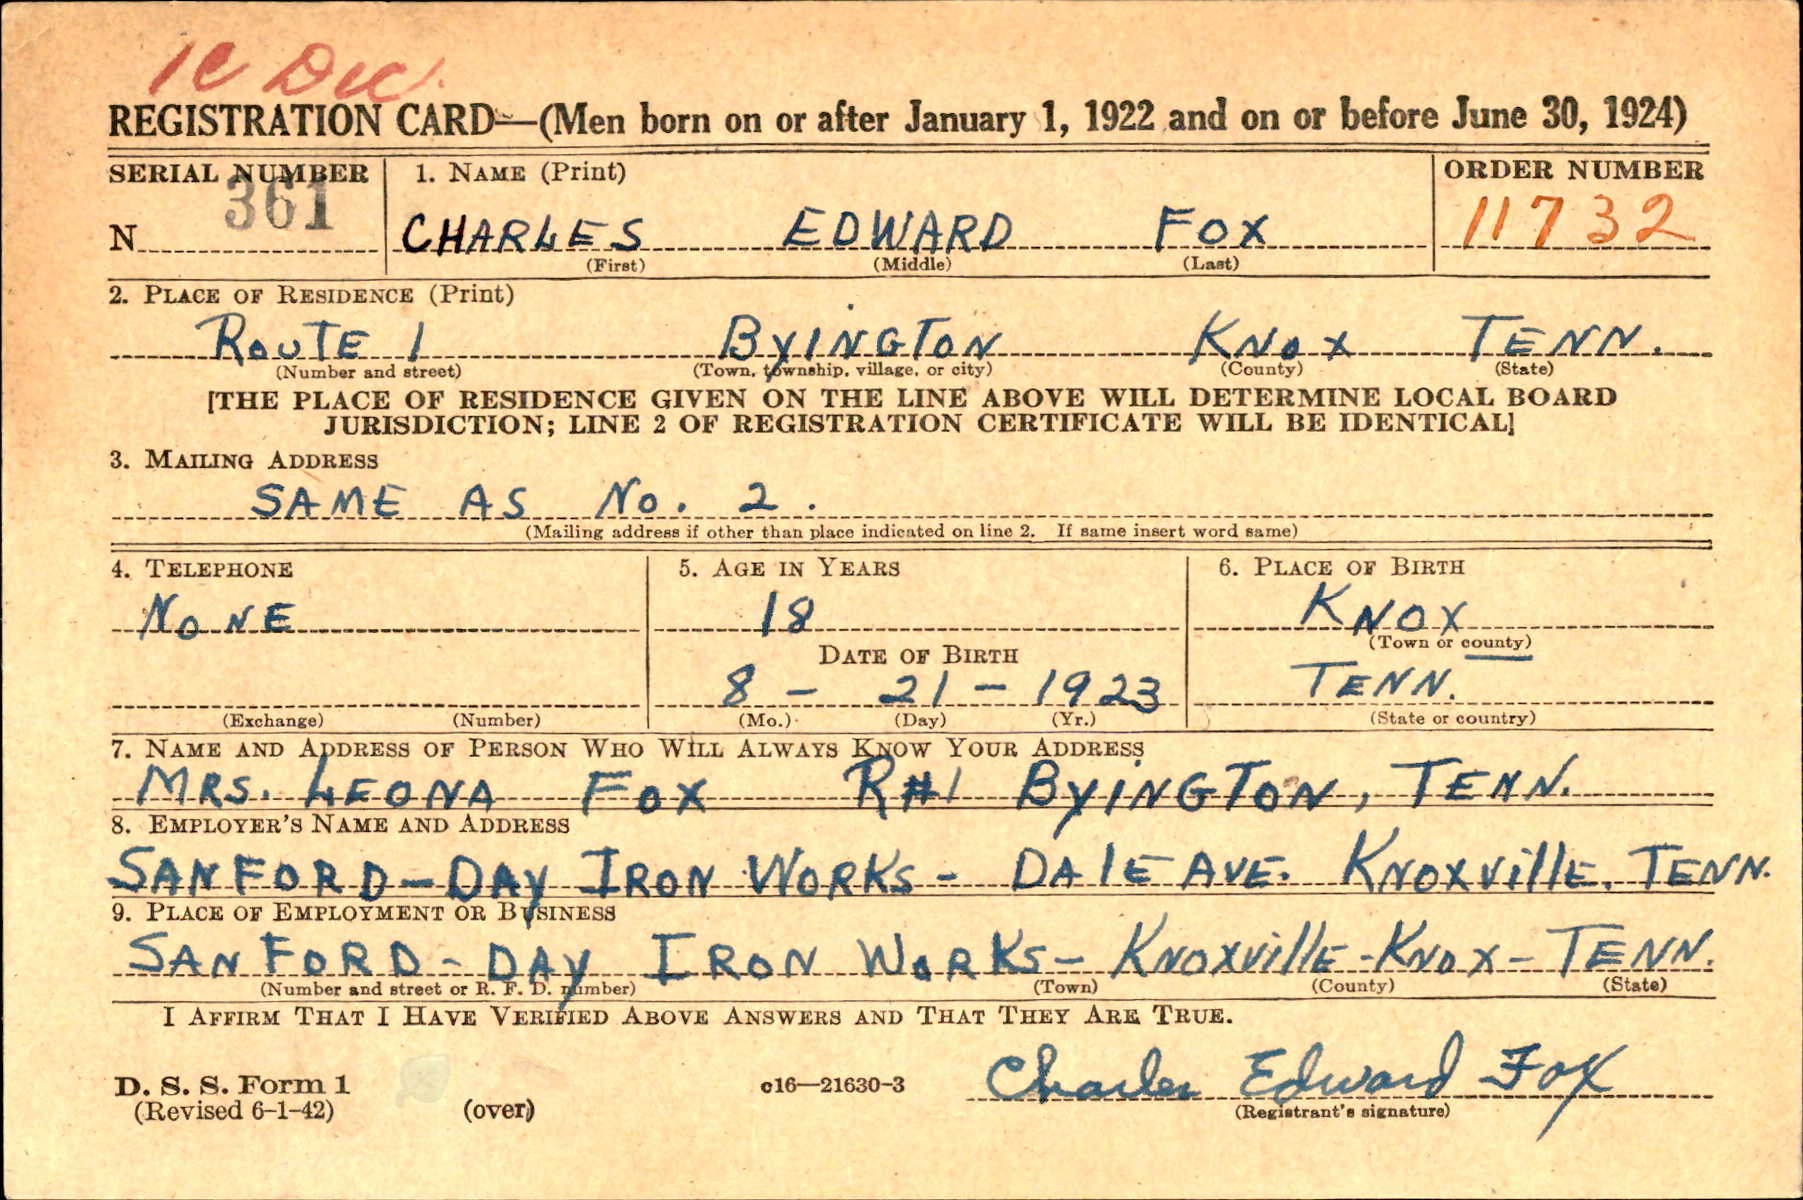 1C Dec.
REGISTRATION CARD—(Men born on or after January 1, 1922 and on or before June 30, 1924)
SERIAL NUMBER 1. NAME (Print) ORDER NUMBER
N 361 CHARLES EDWARD FOX 11732
(First) (Middle) (Last)
2. PLACE OF RESIDENCE (Print)
ROUTE 1 BYINGTON KNOX TENN.
(Number and street) (Town, township, village, or city) (County) (State)
[THE PLACE OF RESIDENCE GIVEN ON THE LINE ABOVE WILL DETERMINE LOCAL BOARD
JURISDICTION; LINE 2 OF REGISTRATION CERTIFICATE WILL BE IDENTICAL]
3. MAILING ADDRESS
SAME AS No. 2.
(Mailing address if other than place indicated on line 2. If same insert word same)
4. TELEPHONE 5. AGE IN YEARS 6. PLACE OF BIRTH
NONE 18 KNOX
(Town or county)
DATE OF BIRTH
8 - 21 - 1923 TENN.
(Exchange) (Number) (Mo.) (Day) (Yr.) (State or country)
7. NAME AND ADDRESS OF PERSON WHO WILL ALWAYS KNOW YOUR ADDRESS
MRS. LEONA FOX R#1 BYINGTON, TENN.
8. EMPLOYER'S NAME AND ADDRESS
SANFORD-DAY IRON WORKS - DALE AVE. KNOXVILLE, TENN.
9. PLACE OF EMPLOYMENT OR BUSINESS
SANFORD-DAY IRON WORKS - KNOXVILLE - KNOX - TENN.
(Number and street or R. F. D. number) (Town) (County) (State)
I AFFIRM THAT I HAVE VERIFIED ABOVE ANSWERS AND THAT THEY ARE TRUE.
D. S. S. Form 1 c16—21630-3 Charles Edward Fox
(Revised 6-1-42) (over) (Registrant's signature)